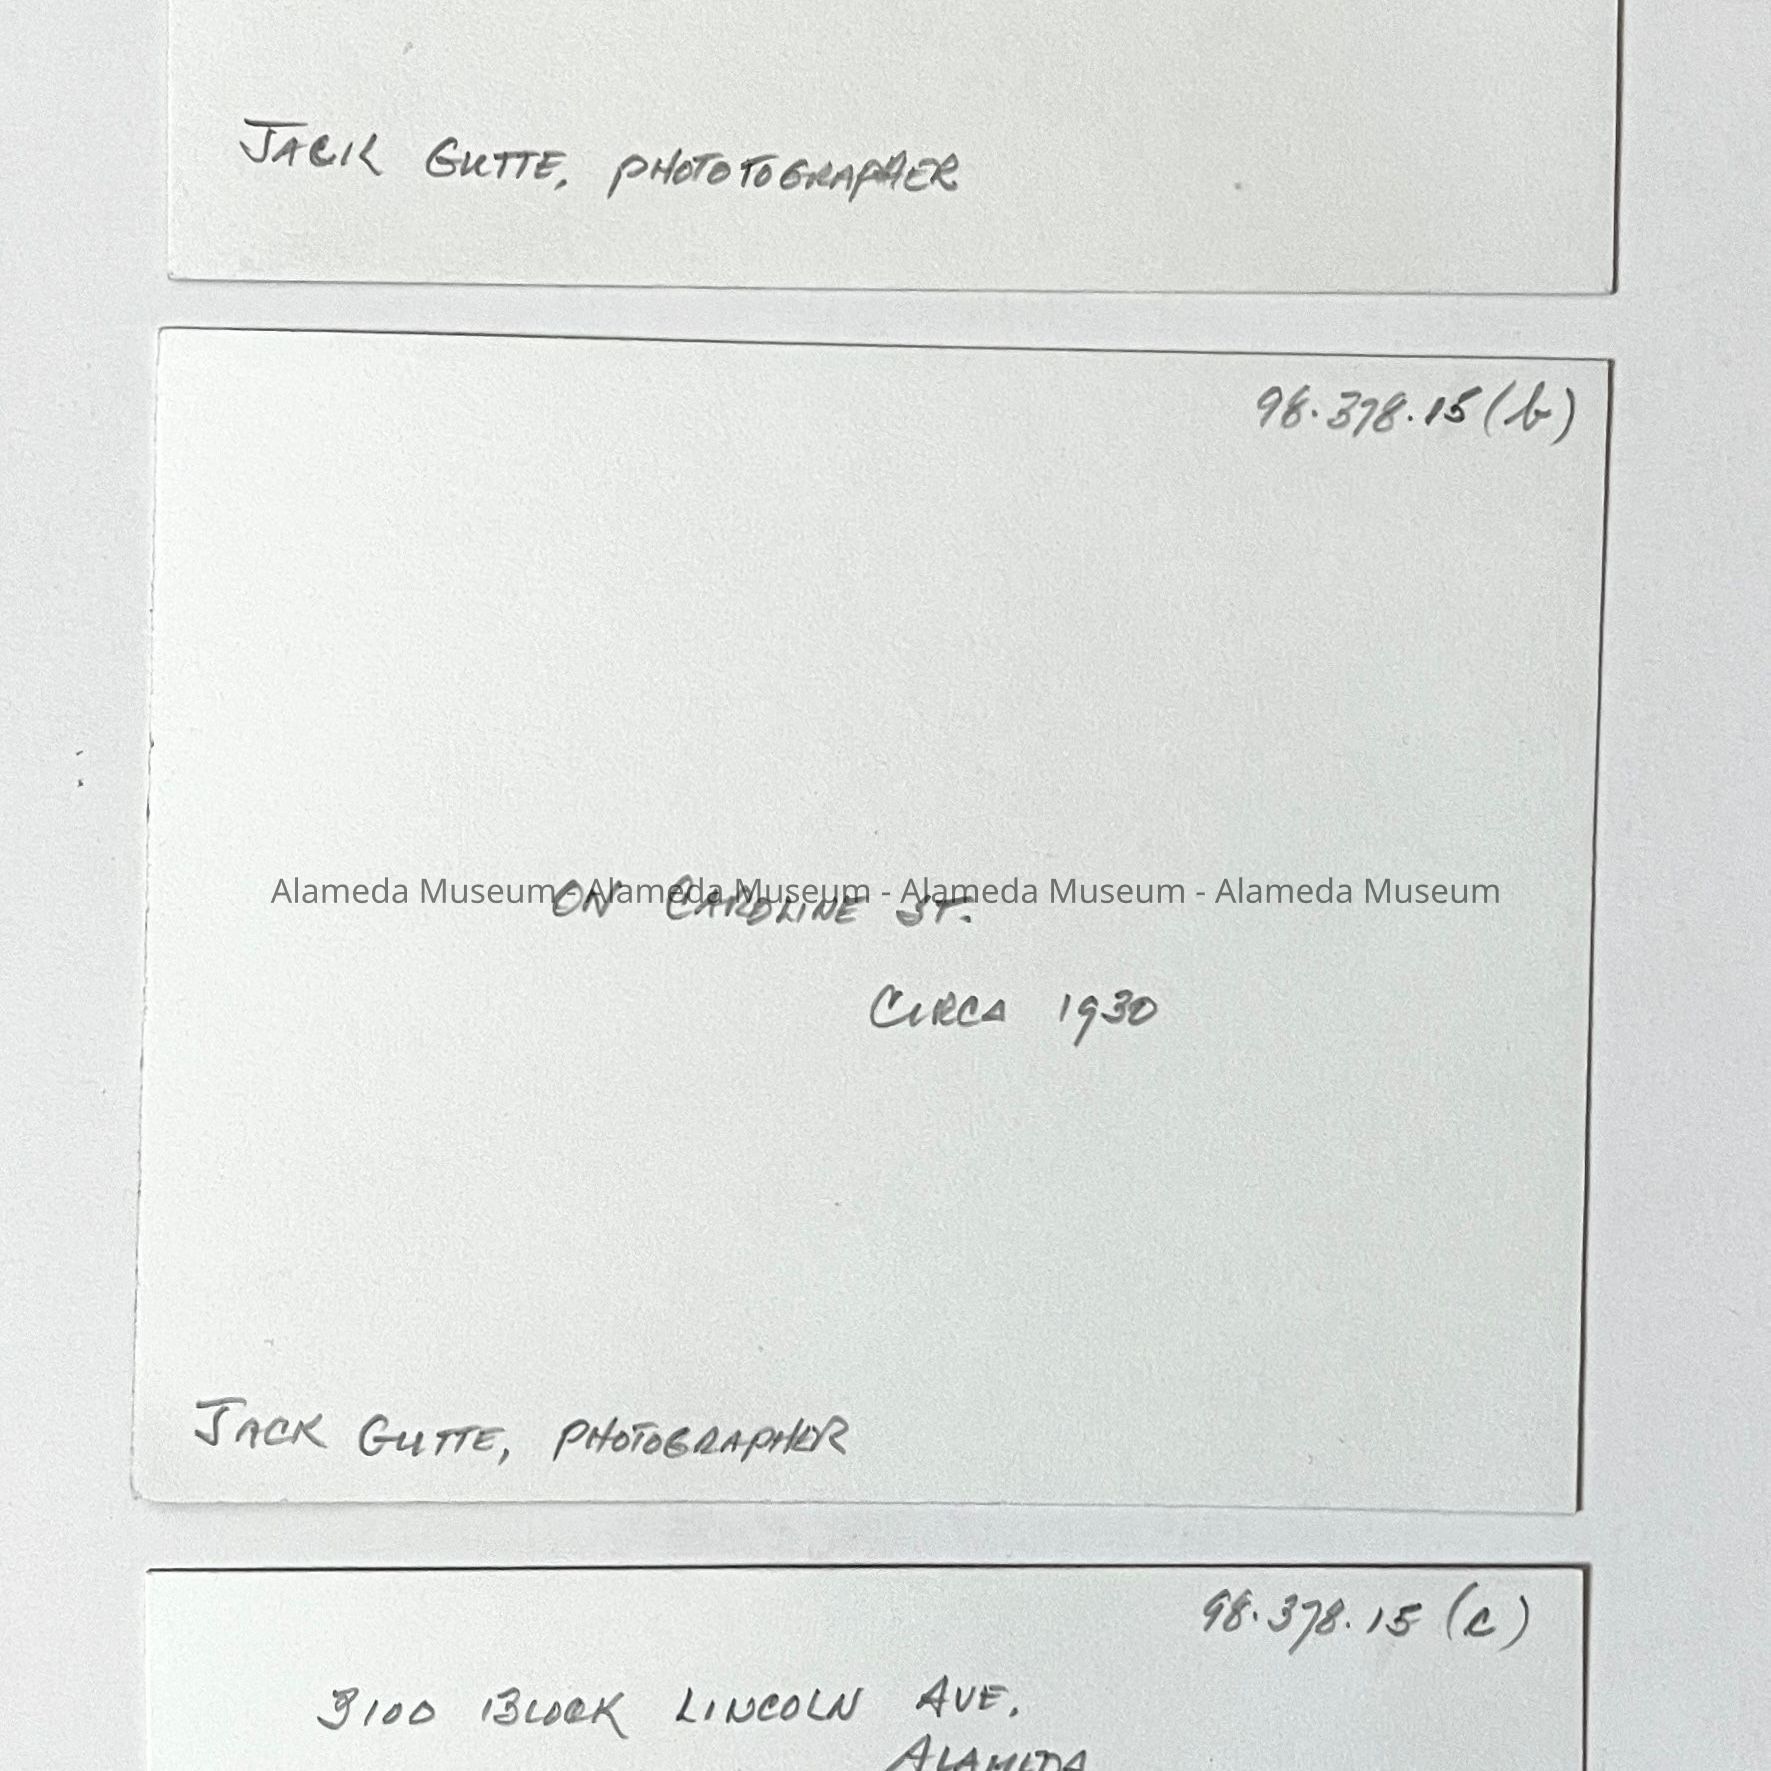 JACK GUTTE, PHOTOTOGRAPHER
98.378.15(b)
Alameda Museum - Alameda Museum - Alameda Museum - Alameda Museum
ON CAROLINE ST.
CIRCA 1930
JACK GUTTE, PHOTOGRAPHER
98.378.15 (c)
3100 BLOCK LINCOLN AVE.
ALAMEDA